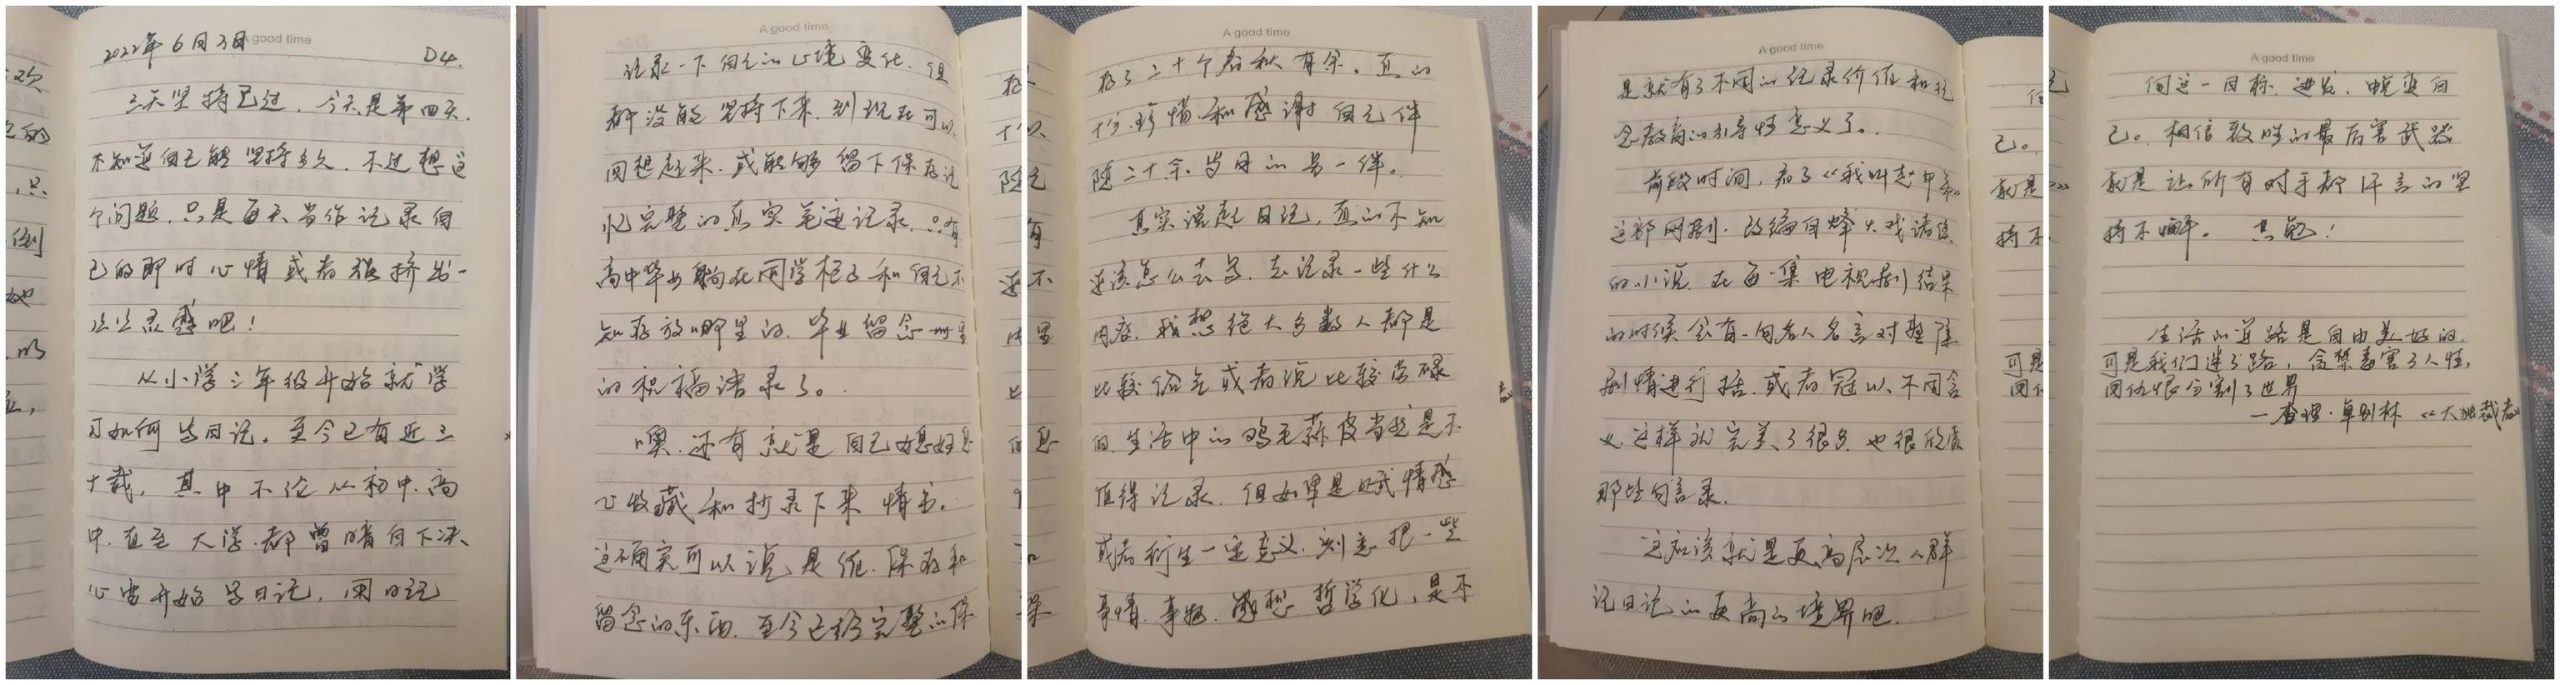 A good time
2022年6月3日
D4.
三天坚持已过,今天是第四天.
不知道自己能坚持多久,不过想这
个问题,只是每天当作记录自
己的即时心情或者狠挤出一
点点灵感吧!
从小学三年级开始就学
习如何写日记。至今已有近三
十载,其中不论从初中、高
中、直至大学、都曾暗自下决
心要开始写日记,用日记
A good time
记录一下自己的心境变化.但
都没能坚持下来.到现在可以
回想起来,或能够留下保存记
忆完整的真实笔迹记录.只有
高中毕业躺在同学柜子和自己不
知存放哪里的毕业留念册里
的祝福语录了。
噢.还有就是自己媳妇
收藏和抄录下来情书。
这确实可以说是值保存和
留念的东西.至今已经完整的保
A good time
存了二十个春秋有余。真的
十分珍惜和感谢自己伴
随二十余岁月的另一伴。
其实说起日记,真的不知
道该怎么去写.去记录一些什么
内容.我想绝大多数人都是
比较俗气或者说比较忙碌
的.生活中的鸡毛蒜皮当然是不
值得记录.但如果是赋情感
或者衍生一定意义.刻意把一些
事情.事物.感想哲学化,是不
A good time
是就有了不同的记录价值和纪
念教育的引导性意义了。
前段时间,看了《我叫赵甲第》
这部网剧.改编自烽火戏诸侯
的小说.在每一集电视剧结束
的时候会有一句名人名言对整集
剧情进行括.或者冠以不同含
义.这样就完美了很多.也很欣赏
那些句言录.
这应该就是更高层次人群
记日记的更高的境界吧.
A good time
向这一目标.进发.蜕变自
己。相信致胜的最厉害武器
就是让所有对手都汗言的坚
持不懈。共勉!
生活的道路是自由美好的,
可是我们迷了路,贪婪毒害了人性,
用仇恨分割了世界
—查理·卓别林《大独裁者》